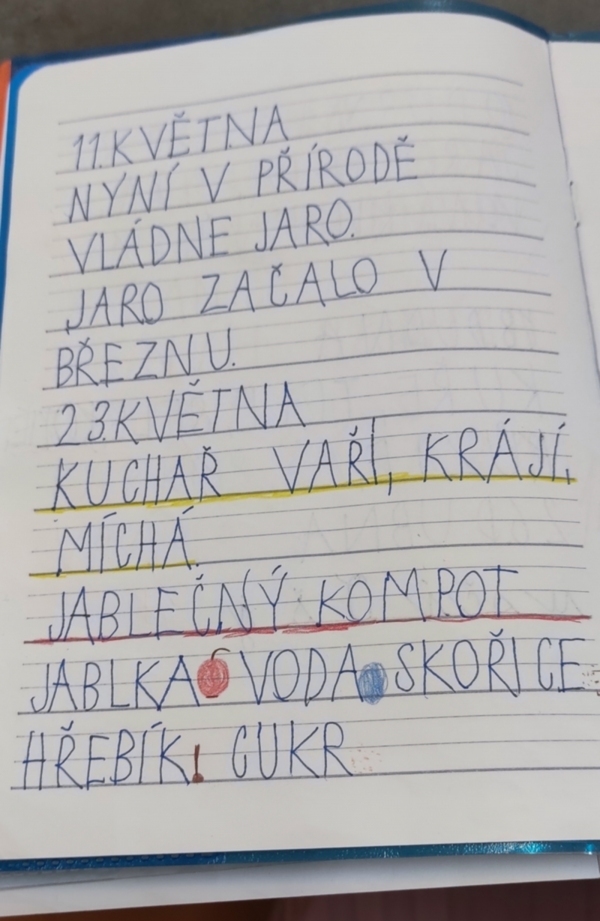 11.KVĚTNA
NYNÍ V PŘÍRODĚ
VLÁDNE JARO.
JARO ZAČALO V
BŘEZNU.
23.KVĚTNA
KUCHAŘ VAŘÍ, KRÁJÍ,
MÍCHÁ.
JABLEČNÝ KOMPOT
JABLKA VODA SKOŘICE
HŘEBÍK! CUKR